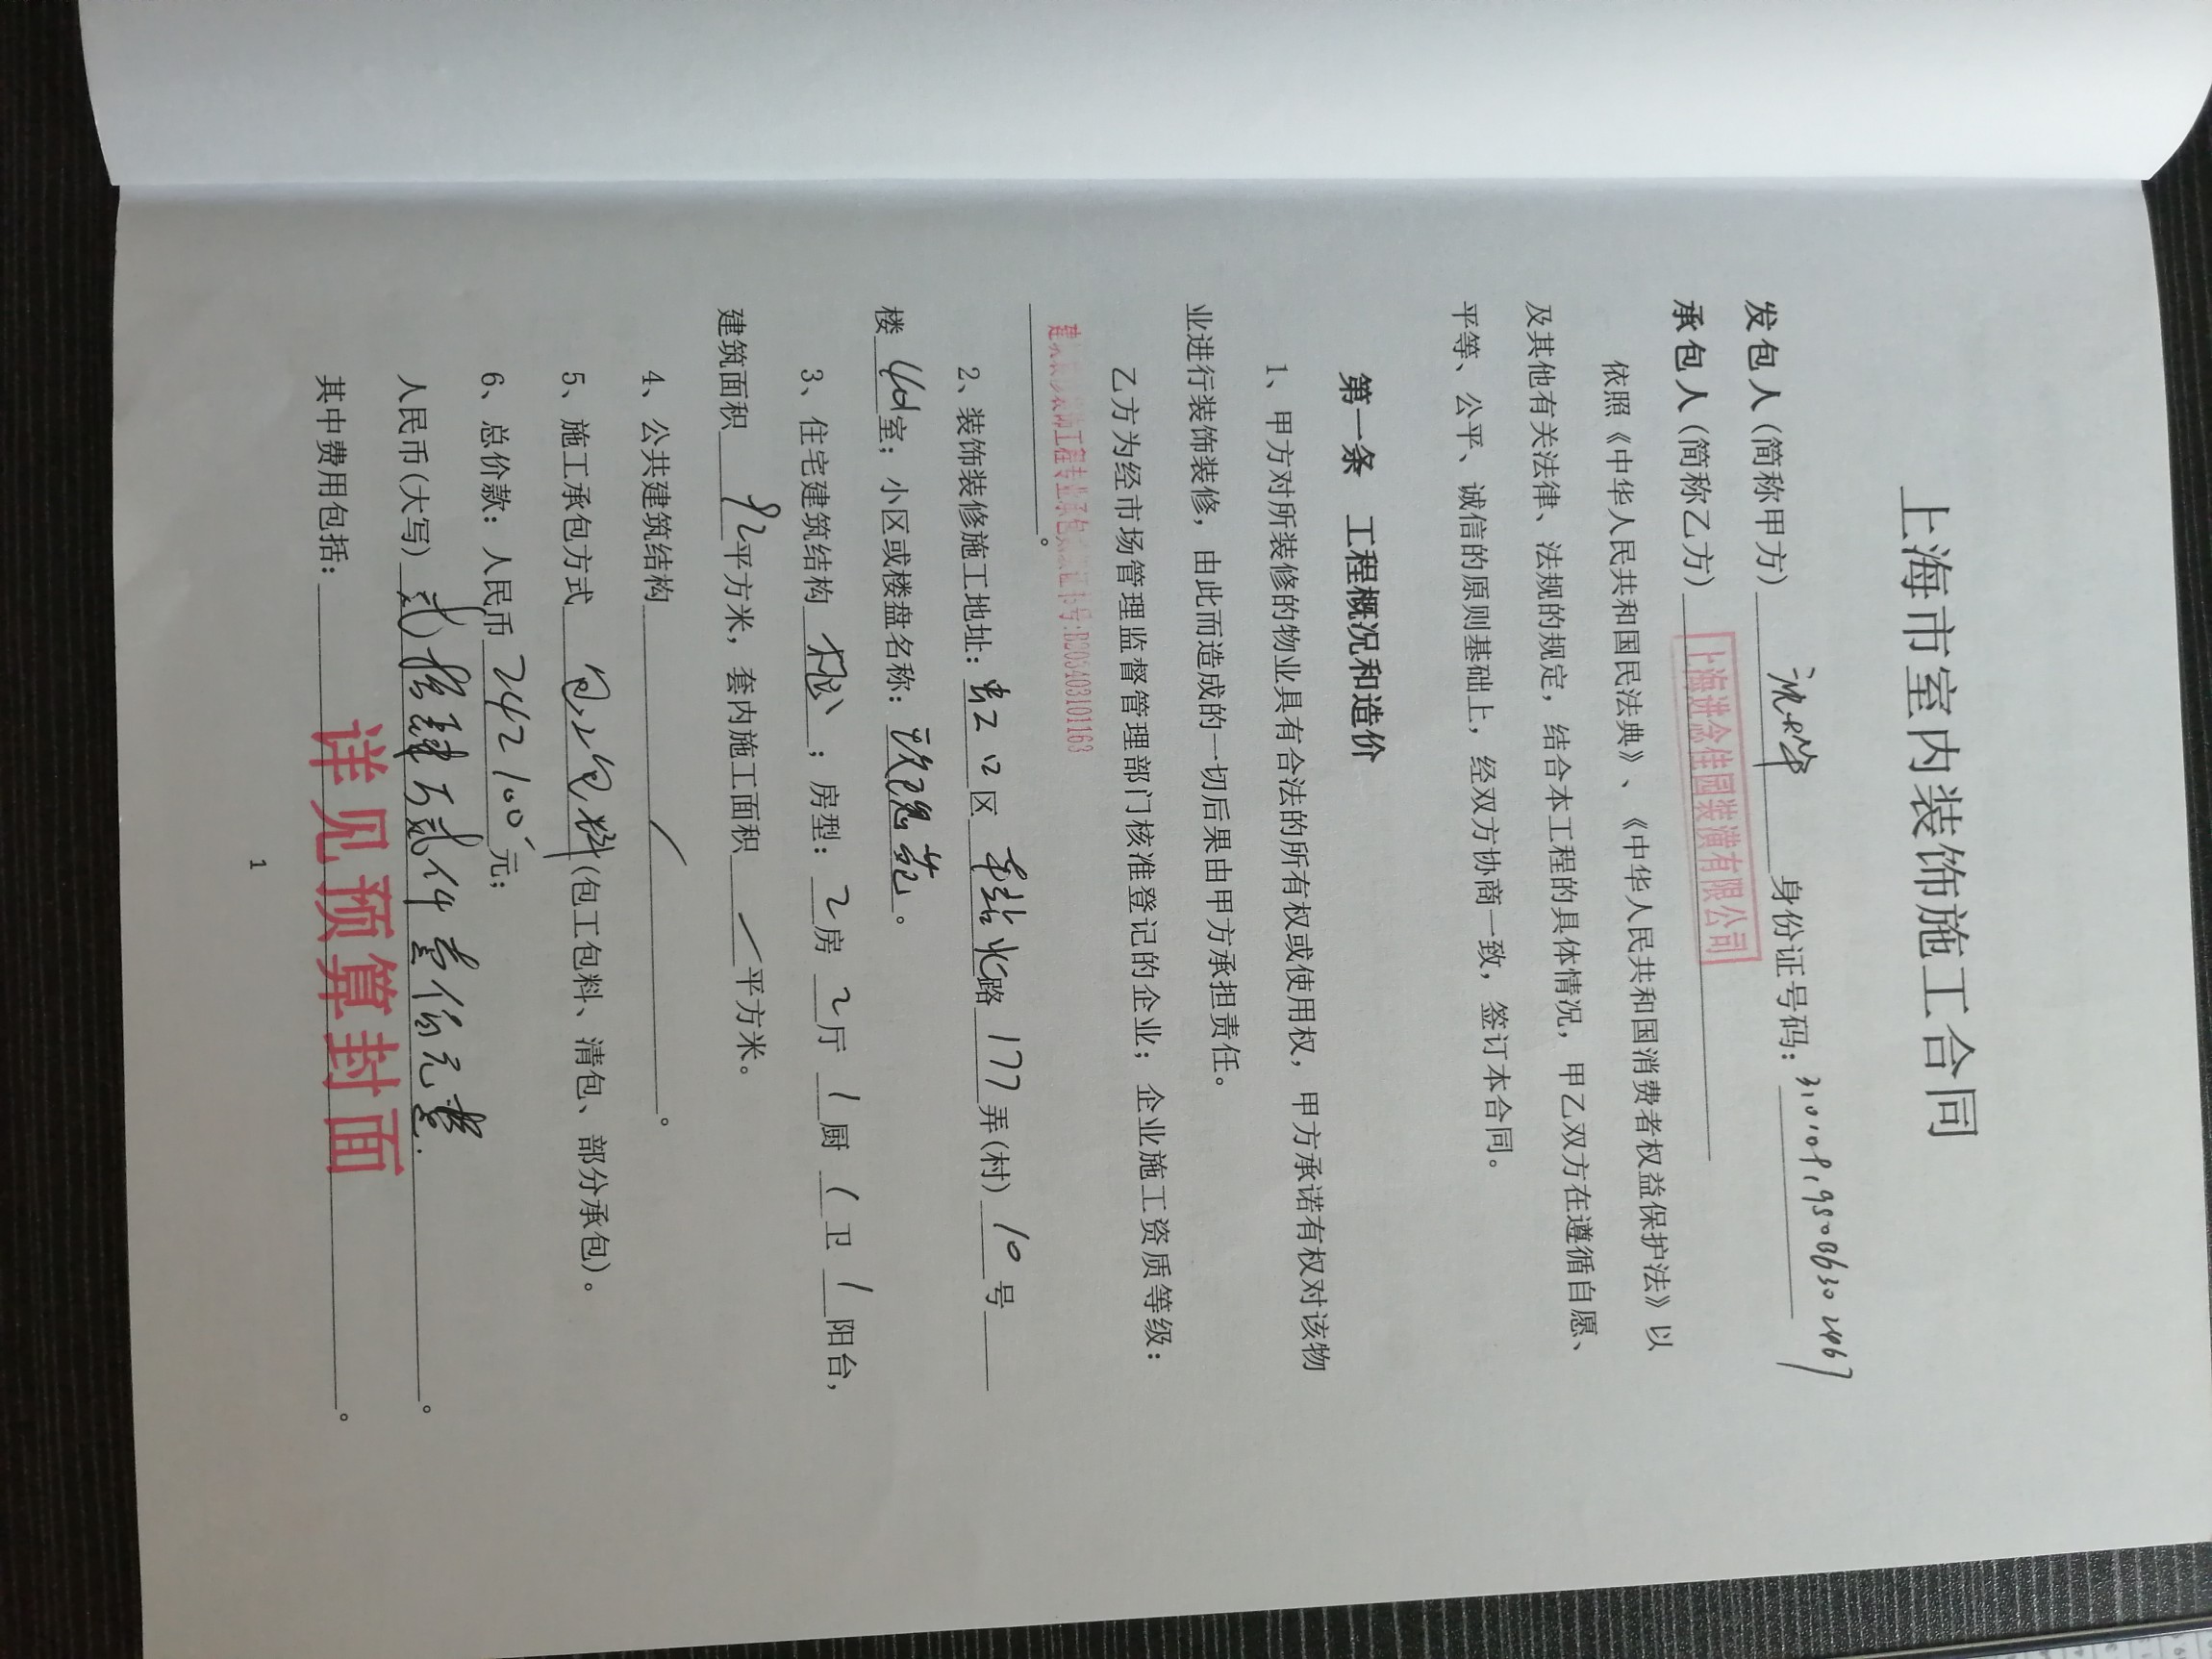 上海市室内装饰施工合同
发包人(简称甲方) 身份证号码:
承包人(简称乙方) 上海进念佳园装潢有限公司
依照《中华人民共和国民法典》、《中华人民共和国消费者权益保护法》以
及其他有关法律、法规的规定,结合本工程的具体情况,甲乙双方在遵循自愿、
平等、公平、诚信的原则基础上,经双方协商一致,签订本合同。
第一条 工程概况和造价
1、甲方对所装修的物业具有合法的所有权或使用权,甲方承诺有权对该物
业进行装饰装修,由此而造成的一切后果由甲方承担责任。
乙方为经市场管理监督管理部门核准登记的企业;企业施工资质等级:
工程专业承包 证书号:B205403101163
。
2、装饰装修施工地址:虹口区 路 177 弄(村) 10 号
楼 室;小区或楼盘名称: 苑。
3、住宅建筑结构 ;房型:2 房 2 厅 1 厨 1 卫 1 阳台,
建筑面积 92 平方米,套内施工面积 平方米。
4、公共建筑结构 。
5、施工承包方式 包工包料(包工包料、清包、部分承包)。
6、总价款:人民币 242100 元;
人民币(大写)贰拾肆万贰仟壹佰元整。
其中费用包括: 详见预算封面 。
1